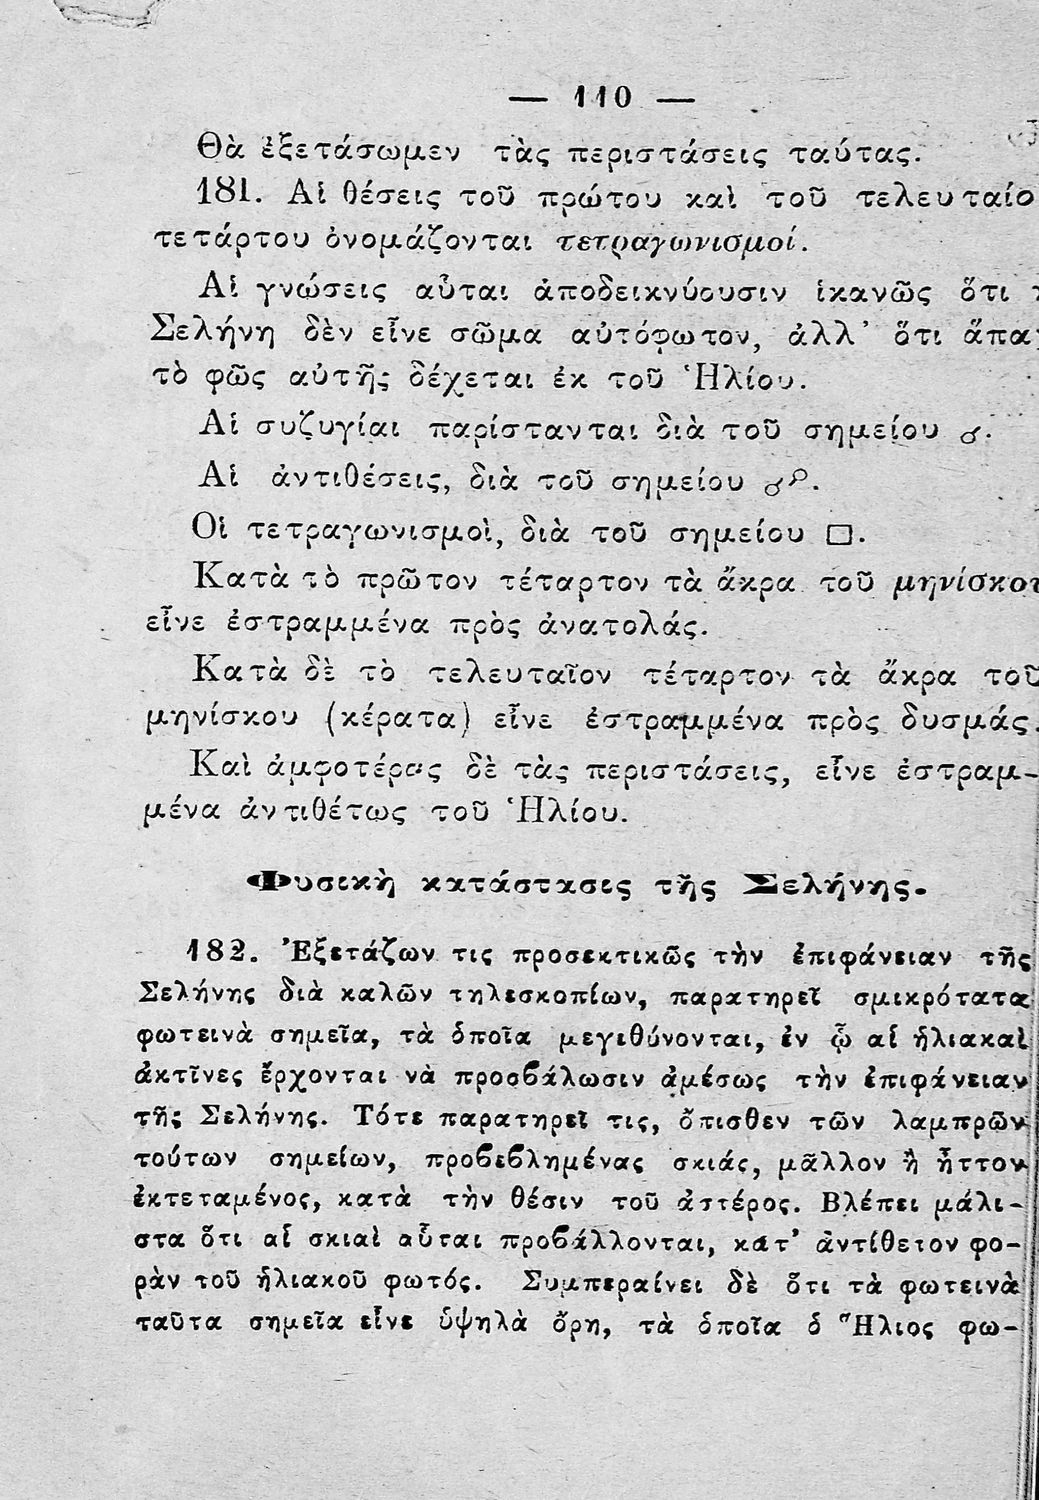 — 110 —
Θὰ ἐξετάσωμεν τὰς περιστάσεις ταύτας.
181. Αἱ θέσεις τοῦ πρώτου καὶ τοῦ τελευταίο
τετάρτου ὀνομάζονται τετραγωνισμοί.
Αἱ γνώσεις αὗται ἀποδεικνύουσιν ἱκανῶς ὅτι
Σελήνη δὲν εἶνε σῶμα αὐτόφωτον, ἀλλ' ὅτι ἅπα
τὸ φῶς αὐτῆς δέχεται ἐκ τοῦ Ἡλίου.
Αἱ συζυγίαι παρίστανται διὰ τοῦ σημείου ☌.
Αἱ ἀντιθέσεις, διὰ τοῦ σημείου ☍.
Οἱ τετραγωνισμοὶ, διὰ τοῦ σημείου □.
Κατὰ τὸ πρῶτον τέταρτον τὰ ἄκρα τοῦ μηνίσκου
εἶνε ἐστραμμένα πρὸς ἀνατολάς.
Κατὰ δὲ τὸ τελευταῖον τέταρτον τὰ ἄκρα τοῦ
μηνίσκου (κέρατα) εἶνε ἐστραμμένα πρὸς δυσμάς.
Καὶ ἀμφοτέρας δὲ τὰς περιστάσεις, εἶνε ἐστραμ-
μένα ἀντιθέτως τοῦ Ἡλίου.
Φυσικὴ κατάστασις τῆς Σελήνης.
182. Ἐξετάζων τις προσεκτικῶς τὴν ἐπιφάνειαν τῆς
Σελήνης διὰ καλῶν τηλεσκοπίων, παρατηρεῖ σμικρότατα
φωτεινὰ σημεῖα, τὰ ὁποῖα μεγιθύνονται, ἐν ᾧ αἱ ἡλιακαὶ
ἀκτῖνες ἔρχονται νὰ προσβάλωσιν ἀμέσως τὴν ἐπιφάνειαν
τῆς Σελήνης. Τότε παρατηρεῖ τις, ὄπισθεν τῶν λαμπρῶν
τούτων σημείων, προβεβλημένας σκιάς, μᾶλλον ἢ ἧττον
ἐκτεταμένος, κατὰ τὴν θέσιν τοῦ ἀστέρος. Βλέπει μάλι-
στα ὅτι αἱ σκιαὶ αὗται προβάλλονται, κατ' ἀντίθετον φο-
ρὰν τοῦ ἡλιακοῦ φωτός. Συμπεραίνει δὲ ὅτι τὰ φωτεινὰ
ταῦτα σημεῖα εἶνε ὑψηλὰ ὄρη, τὰ ὁποῖα ὁ Ἥλιος φω-